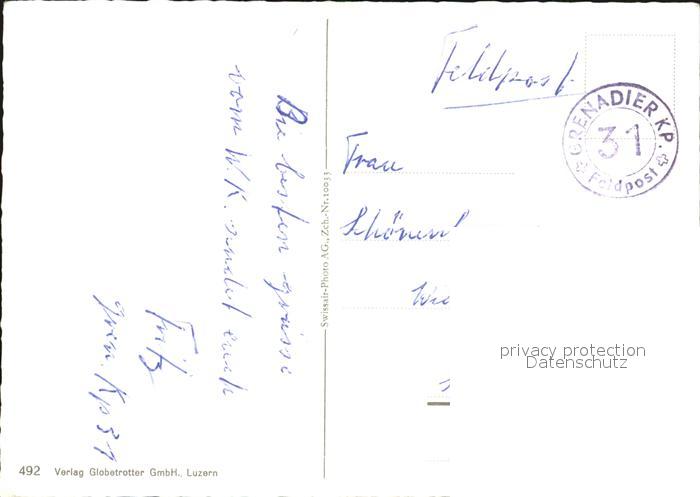 Die besten grüsse
vom W.K. sendet euch
Fritz
Gren. Kp 31
Feldpost
GRENADIER KP.
31
Feldpost
Frau
Wie
privacy protection
Datenschutz
Swissair-Photo AG., Zch.-Nr. 10033
492 Verlag Globetrotter GmbH., Luzern